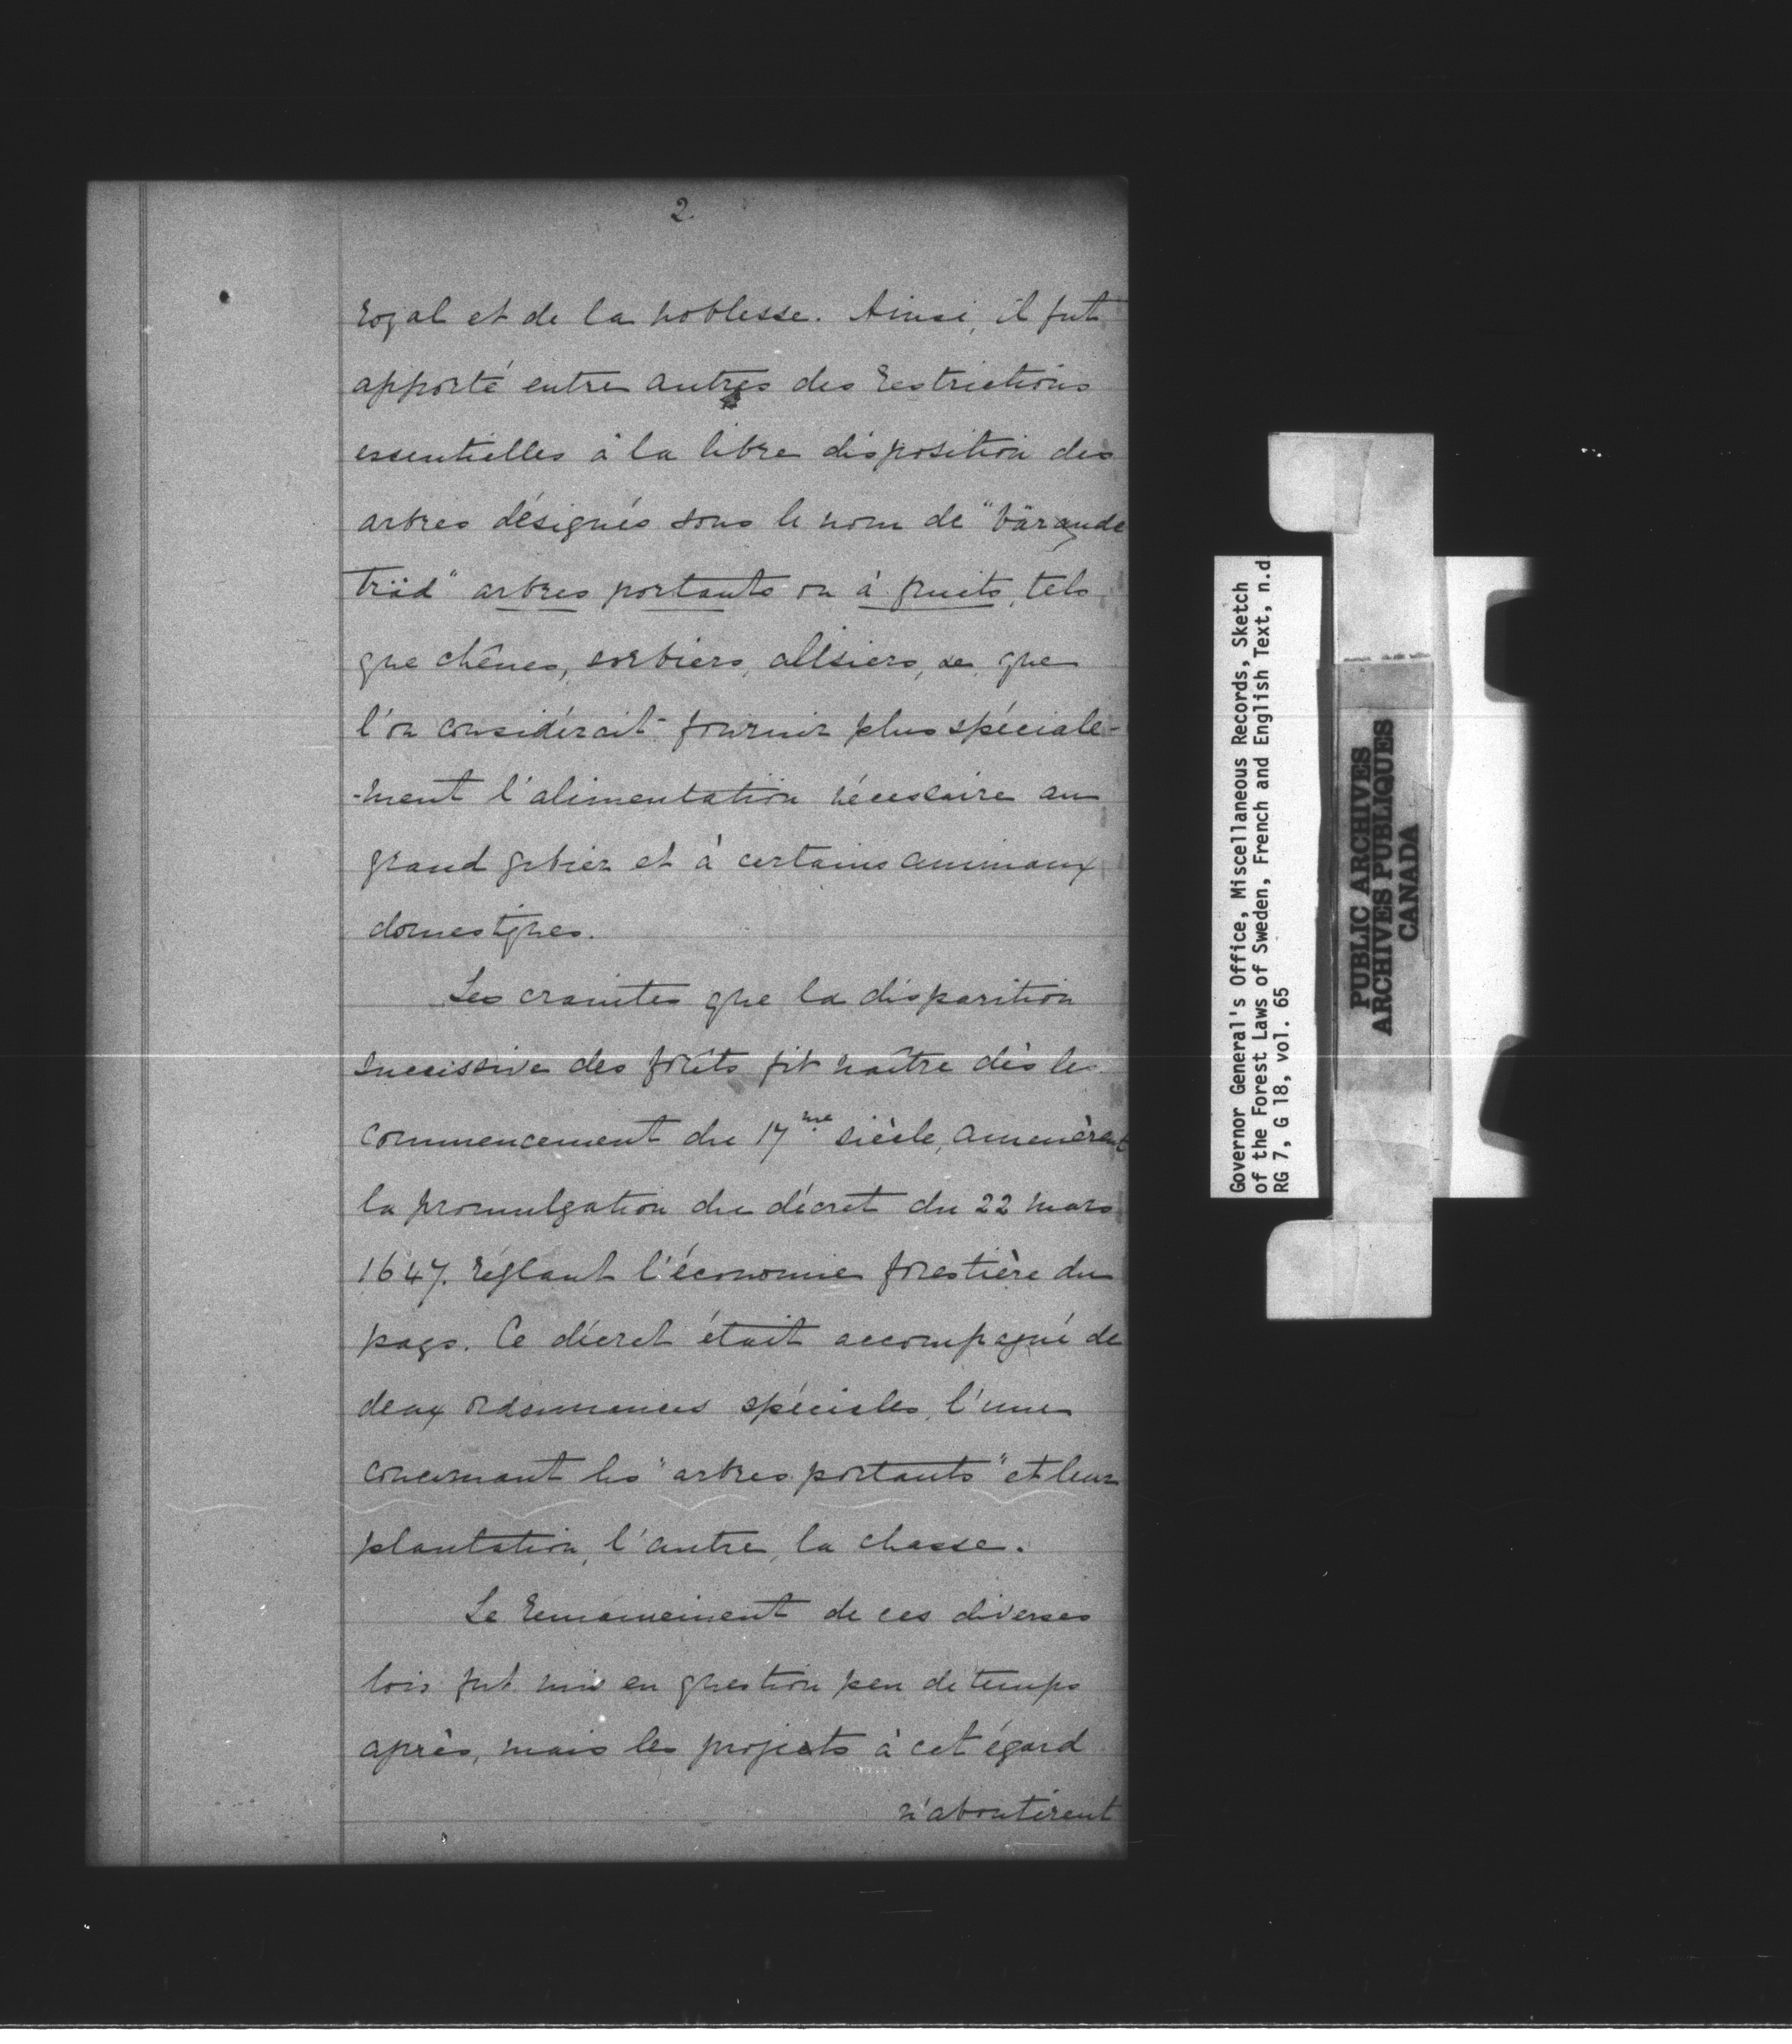 2.
royal et de la noblesse. Ainsi, il fut
apporté entre autres des restrictions
essentielles à la libre disposition des
arbres désignés sous le nom de "bärande
träd" arbres portants ou à fruits, tels
que chênes, sorbiers, allsiers, que
l'on considérait fournir plus spéciale-
-ment l'alimentation nécessaire au
grand gibier et à certains animaux
domestiques.
Les craintes que la disparition
successive des forêts fit naître dès le
commencement du 17me siècle, amenèrent
la promulgation du décret du 22 mars
1647. réglant l'économie forestière du
pays. Ce décret était accompagné de
deux ordonnances spéciales, l'une
concernant les "arbres portants" et leur
plantation, l'autre, la chasse.
Le remaniement de ces diverses
lois fut mis en question peu de temps
après, mais les projets à cet égard
n'aboutirent
Governor General's Office, Miscellaneous Records, Sketch
of the Forest Laws of Sweden, French and English Text, n.d
RG 7, G 18, vol. 65
PUBLIC ARCHIVES
ARCHIVES PUBLIQUES
CANADA